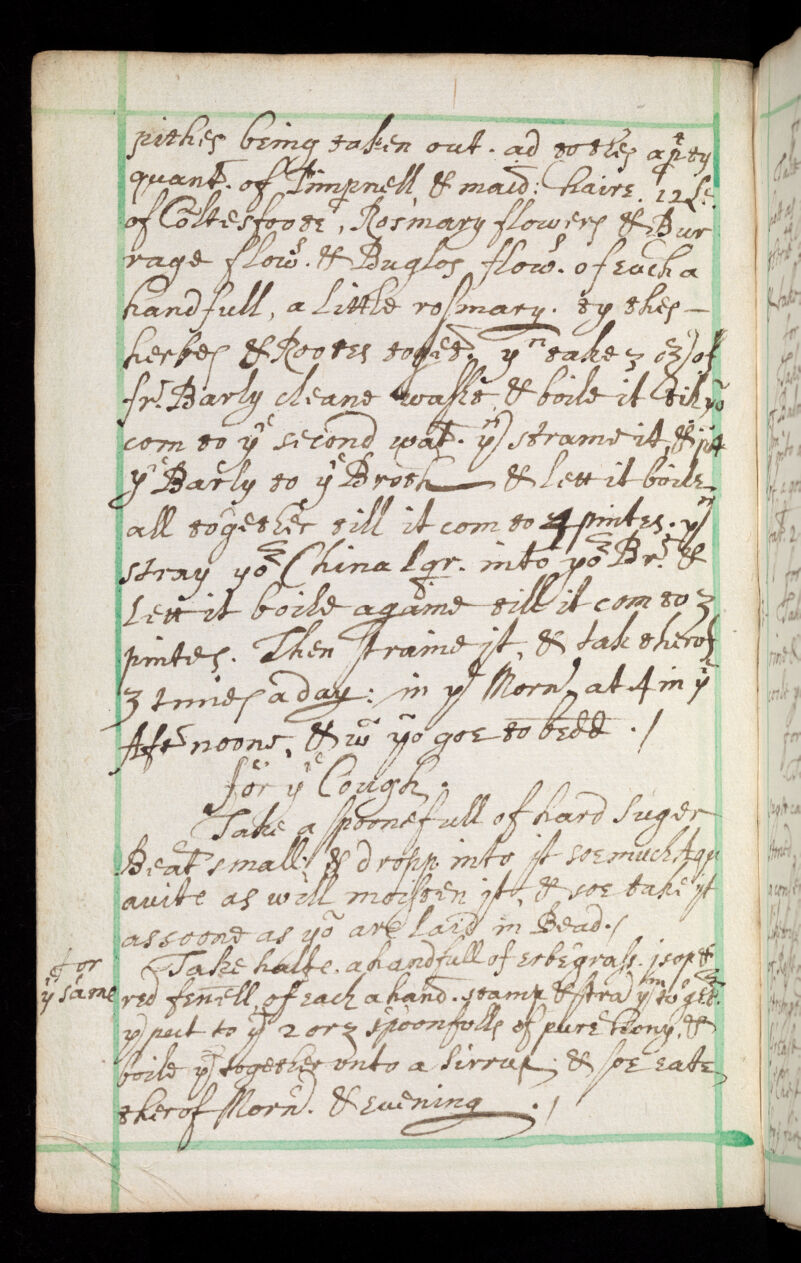 pithes being taken out. ad to thes a p̄ty
quant̄. of Pimpnell & maid: haire. 12 le:
of Coltesfoote, Rosmary flowers & Bur
rage flow̄s. & Buglos flow̄s. of each a
handfull, a little rosmary. ty thes
herbes & Rootes toget̄. yn take 3 oz of
fr. Barly cleane washt, & boile it till yo
com to ye second wat̄. yn straine it, & put
ye Barly to ye Broth & lett it boile
all together till it com to 4 pintes. yn
stray yor China lqr. into yor Br. &
Lett it boile againe till it com to 3
pintes. Then straine it, & tak therof
3 times a day: in ye Morn, at 4 in ye
Aftr noone, & wn yo goe to bedd ./
for ye Cough.
Take a spoonefull of hard Suger
Beat small: & dropp into it soe much Aqu
avite as will moisten it, & soe take it
assoone as yo are laid in Bead./
for
ye same
Take halfe a handfull of erbegrass. isop &
red fenell of each a hand. stamp & stra ym toget̄.
yn put to ym 2 or 3 spoonfulls of pure hony, &
boile ym together vnto a Sirrup; & soe eate
therof Morn̄. & Evening ./